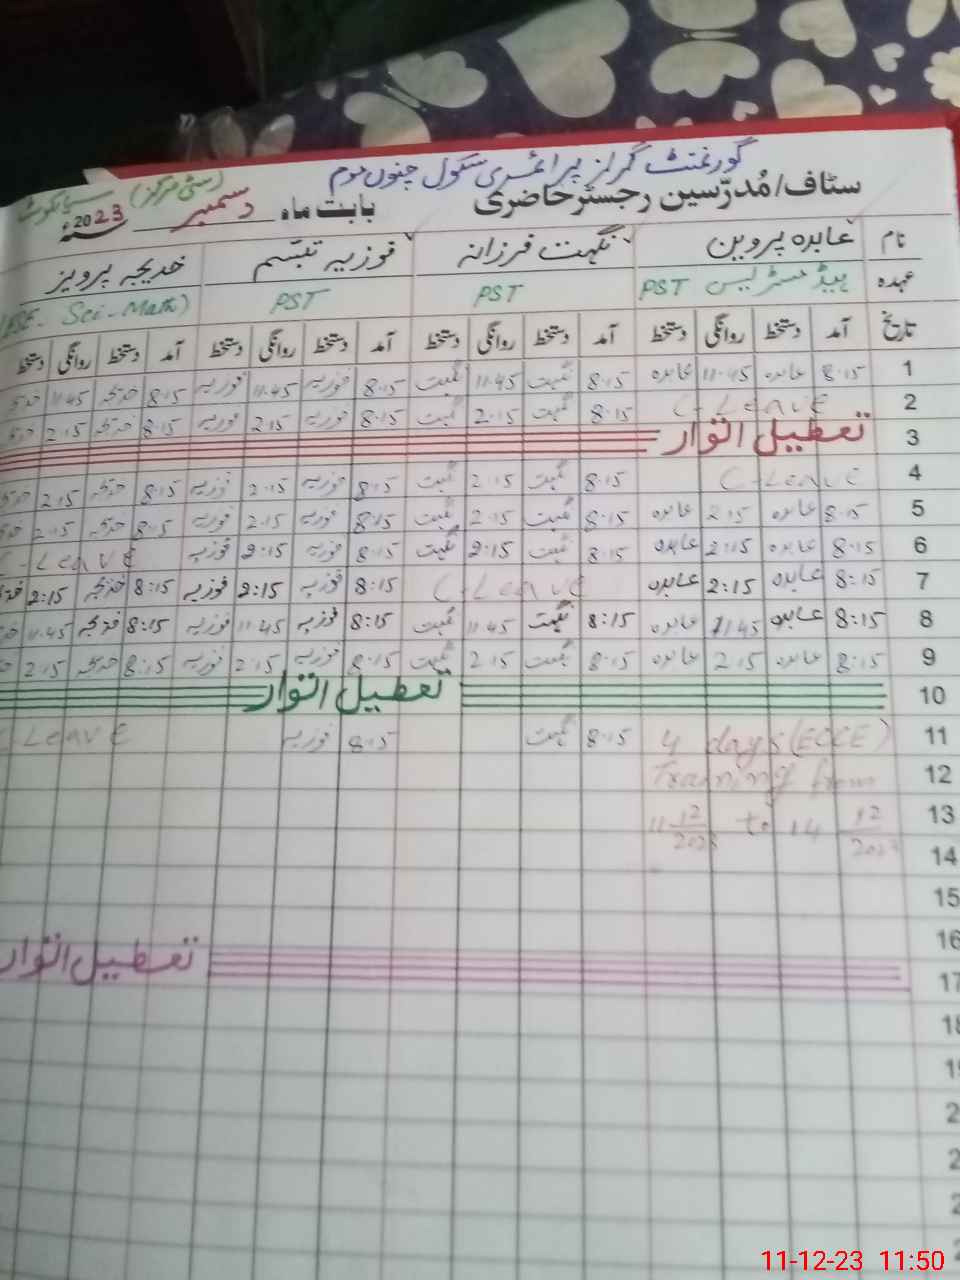 گورنمنٹ گرلز پرائمری سکول چنوں موم (سٹی مرکز) سیالکوٹ
سٹاف/مُدرّسین رجسٹر حاضری بابت ماہ دسمبر 2023ء
نام عابدہ پروین نگہت فرزانہ فوزیہ تبسّم خدیجہ پرویز
عہدہ ہیڈ مسٹریس PST PST PST (ESE- Sci-Math)
تاریخ آمد دستخط روانگی دستخط آمد دستخط روانگی دستخط آمد دستخط روانگی دستخط آمد دستخط روانگی دستخط
1 8:15 عابدہ 11:45 عابدہ 8:15 نگہت 11:45 نگہت 8:15 فوزیہ 11:45 فوزیہ 8:15 خدیجہ 11:45
2 C-Leave 8:15 نگہت 2:15 نگہت 8:15 فوزیہ 2:15 فوزیہ 8:15 خدیجہ 2:15
3 تعطیل اتوار
4 C-Leave 8:15 نگہت 2:15 نگہت 8:15 فوزیہ 2:15 فوزیہ 8:15 خدیجہ 2:15
5 8:15 عابدہ 2:15 عابدہ 8:15 نگہت 2:15 نگہت 8:15 فوزیہ 2:15 فوزیہ 8:15 خدیجہ 2:15
6 8:15 عابدہ 2:15 عابدہ 8:15 نگہت 2:15 نگہت 8:15 فوزیہ 2:15 فوزیہ C-Leave
7 8:15 عابدہ 2:15 عابدہ C-Leave 8:15 فوزیہ 2:15 فوزیہ 8:15 خدیجہ 2:15
8 8:15 عابدہ 11:45 عابدہ 8:15 نگہت 11:45 نگہت 8:15 فوزیہ 11:45 فوزیہ 8:15 خدیجہ 11:45
9 8:15 عابدہ 2:15 عابدہ 8:15 نگہت 2:15 نگہت 8:15 فوزیہ 2:15 فوزیہ 8:15 خدیجہ 2:15
10 تعطیل اتوار
11 4 days (ECCE) 8:15 نگہت 8:15 فوزیہ C-Leave
12 Training from
13 11 12/2023 to 14 12/2023
14
15
16
17 تعطیل اتوار
18
11-12-23 11:50